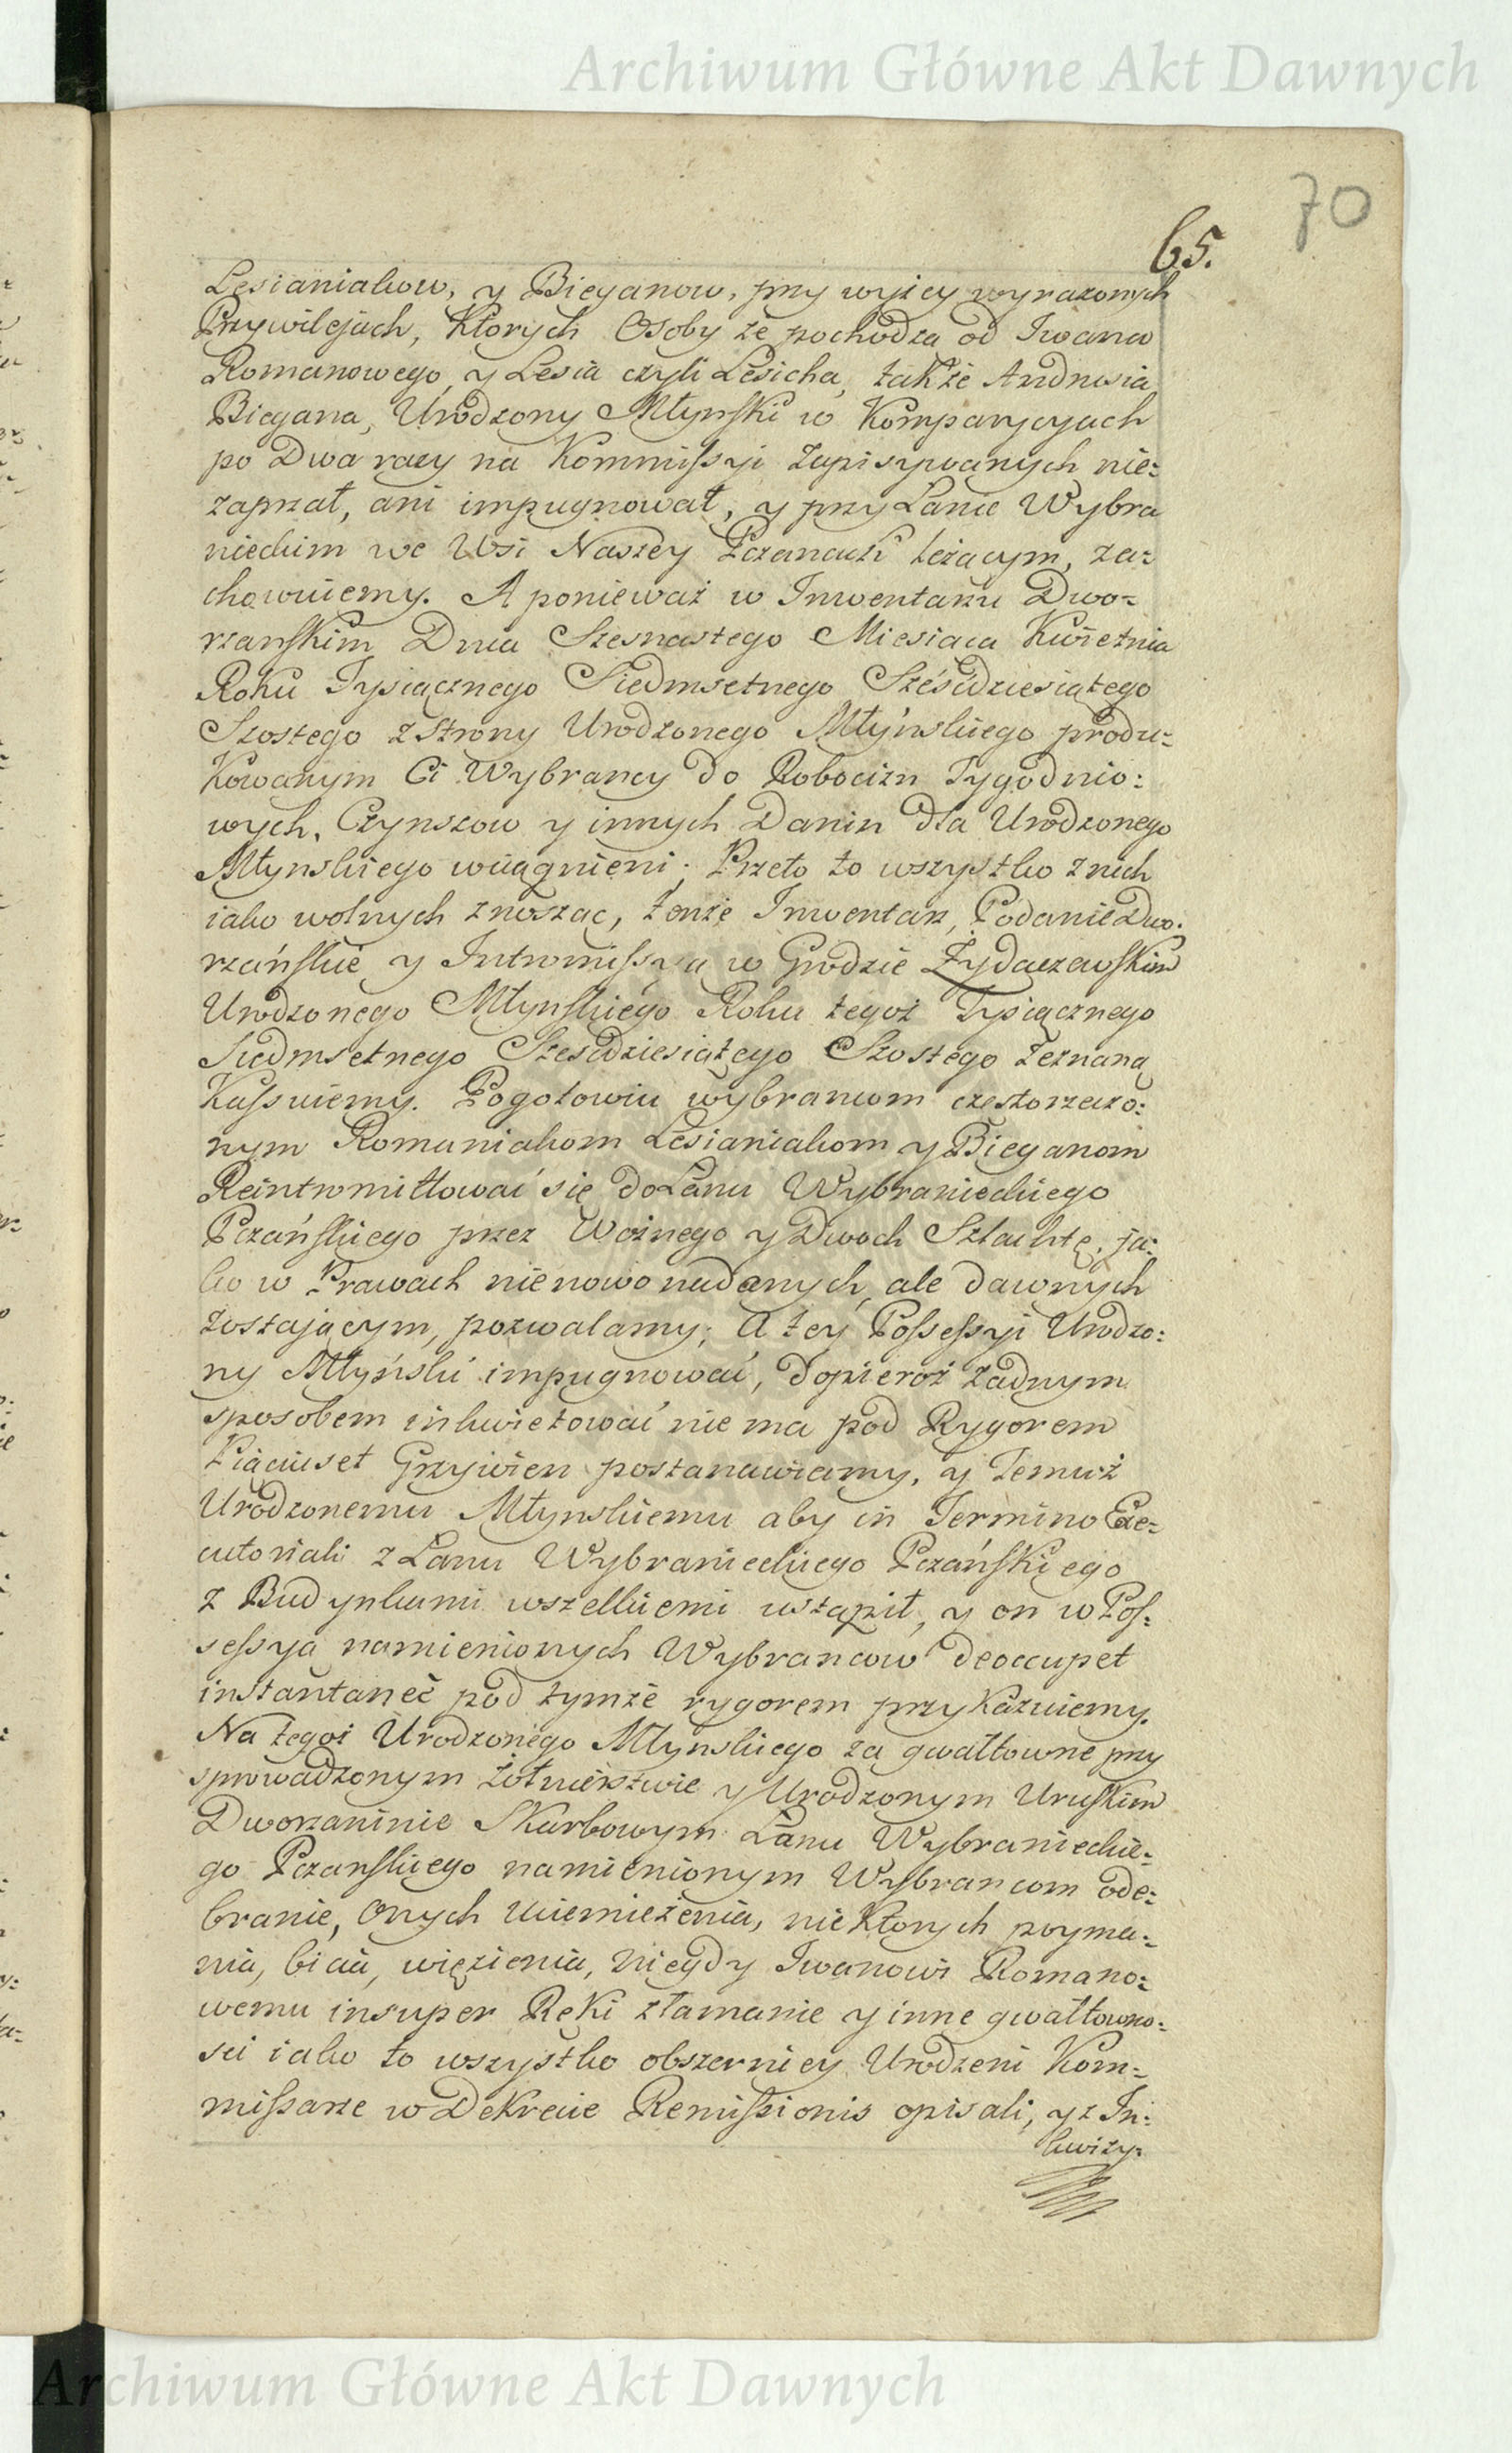 Archiwum Główne Akt Dawnych
70
65.
Lesianiakow, y Bieganow, przy wyżey wyrazonych
Przywilejach, Ktorych Osoby że pochodzą od Iwana
Romanowego, y Lesia czyli Lesicha, także Andrusia
Biegana, Urodzony Młynski w Komparycyach
po Dwa razy na Kommissyi zapisywanych nie=
zaprzał, ani impugnował, y przy Łanie Wybra
nieckim we Wsi Naszey Pczanach leżącym, za=
chowuiemy. A ponieważ w Inwentarzu Dwo=
rzanskim Dnia Szesnastego Miesiąca Kwietnia
Roku Tysiącznego Siedmsetnego Sześćdziesiątego
Szostego z Strony Urodzonego Młyńskiego produ=
kowanym Ci Wybrancy do Robocizn Tygodnio=
wych, Czynszow y innych Danin dla Urodzonego
Młynskiego wciągnieni; Przeto to wszystko z nich
iako wolnych znosząc, tenże Inwentarz, Podanie Dwo=
rzańskie y Intromissya w Grodzie Żydaczewskim
Urodzonego Młynskiego Roku tegoż Tysiącznego
Siedmsetnego Szesćdziesiątego Szostego zeznaną
Kassuiemy. Pogotowiu wybrancom częstorzeczo=
nym Romaniakom Lesianiakom y Bieganom
Reintromittować się do Łanu Wybranieckiego
Pczańskiego przez Woźnego y Dwoch Szlachtę, ja=
ko w Prawach nienowo nadanych, ale dawnych
zostającym, pozwalamy; A tey Possessyi Urodzo=
ny Młyński impugnować, dopieroż żadnym
sposobem inkwietować nie ma pod Rygorem
Piąciuset Grzywien postanawiamy, y Temuż
Urodzonemu Młynskiemu aby in Termino Exe=
cutoriali z Łanu Wybranieckiego Pczańskiego
z Budynkami wszelkiemi ustąpił, y on w Pos=
sessya namienionych Wybrancow deoccupet
instantaneè pod tymże rygorem przykazuiemy.
Na tegoż Urodzonego Młynskiego za gwałtowne przy
sprowadzonym żołnierstwie y Urodzonym Uruskim
Dworzaninie Skarbowym Łanu Wybranieckie=
go Pczanskiego namienionym Wybrancom ode=
branie, Onych uciemiężenia, niektorych poyma=
nia, bicia, więzienia, niegdy Iwanowi Romano=
wemu insuper Ręki złamanie y inne gwałtowno=
sci iako to wszystko obszerniey Urodzeni Kom=
missarze w Dekrecie Remissionis opisali, y z In=
kwizy=
Archiwum Główne Akt Dawnych